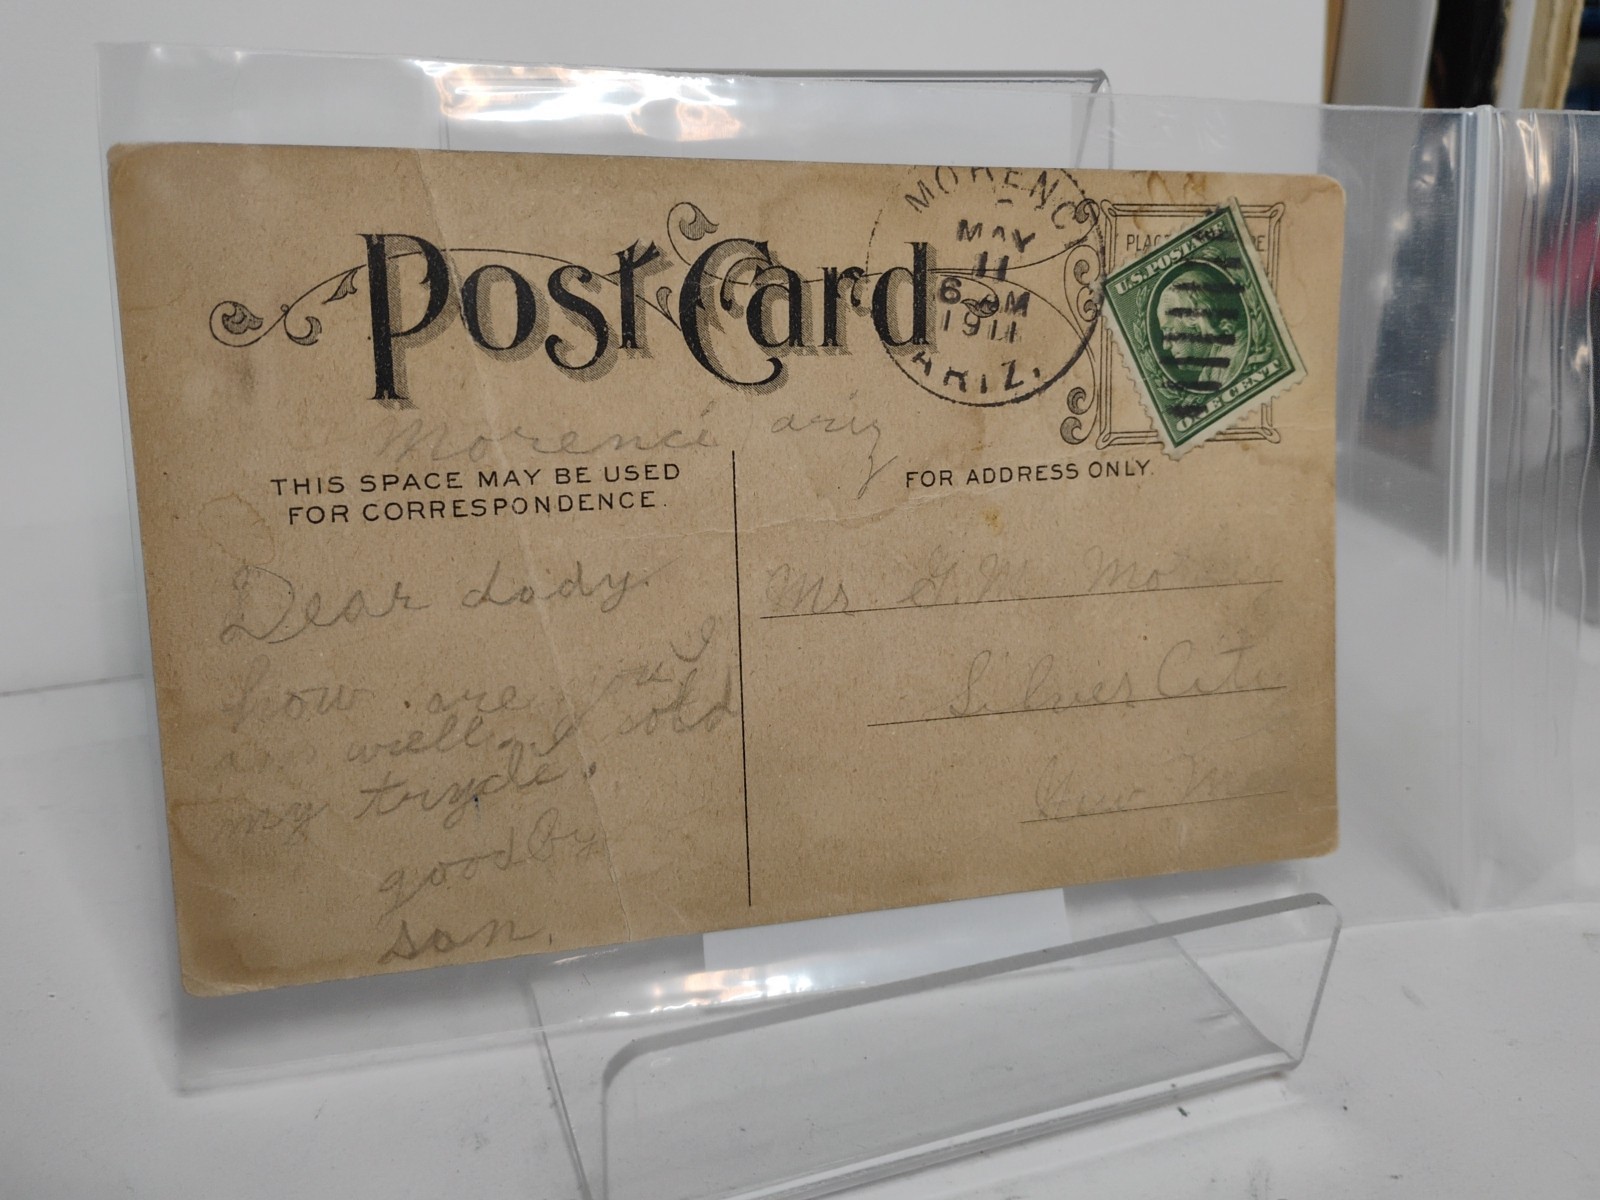 Post Card
MORENCI
MAY
11
6 PM
1911
ARIZ.
U.S. POSTAGE
ONE CENT
Morenci ariz
THIS SPACE MAY BE USED
FOR CORRESPONDENCE.
FOR ADDRESS ONLY.
Dear dady.
how are you I
am well. I sold
my trycle.
goodby
son.
Mr. G. M.
Silver City
New